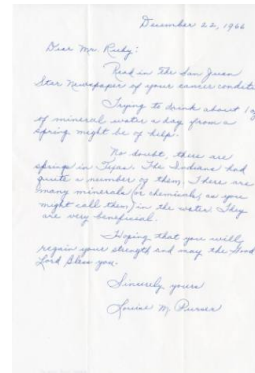 December 22, 1966
Dear Mr. Ruby:
Read in the San Juan
Star Newspaper of your cancer condit
Trying to drink about 1 g
of mineral water a day from a
spring might be of help.
No doubt there are
springs in Texas. The Indians had
quite a number of them. There are
many minerals or chemicals, as you
might call them, in the water. They
are very beneficial.
Hoping that you will
regain your strength and may the Good
Lord Bless you.
Sincerely yours
Louise M.